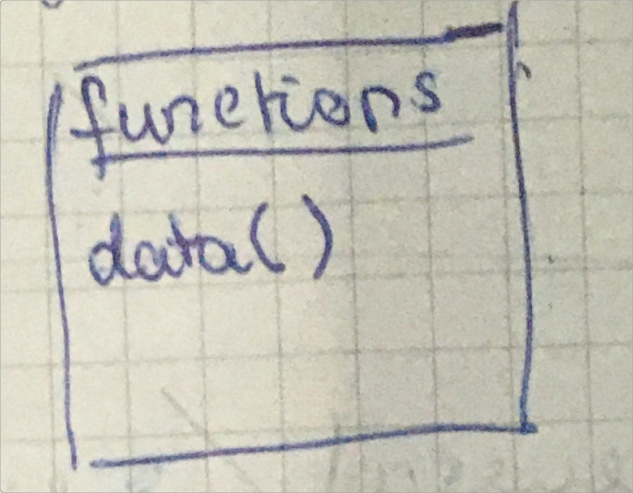 functions
data()